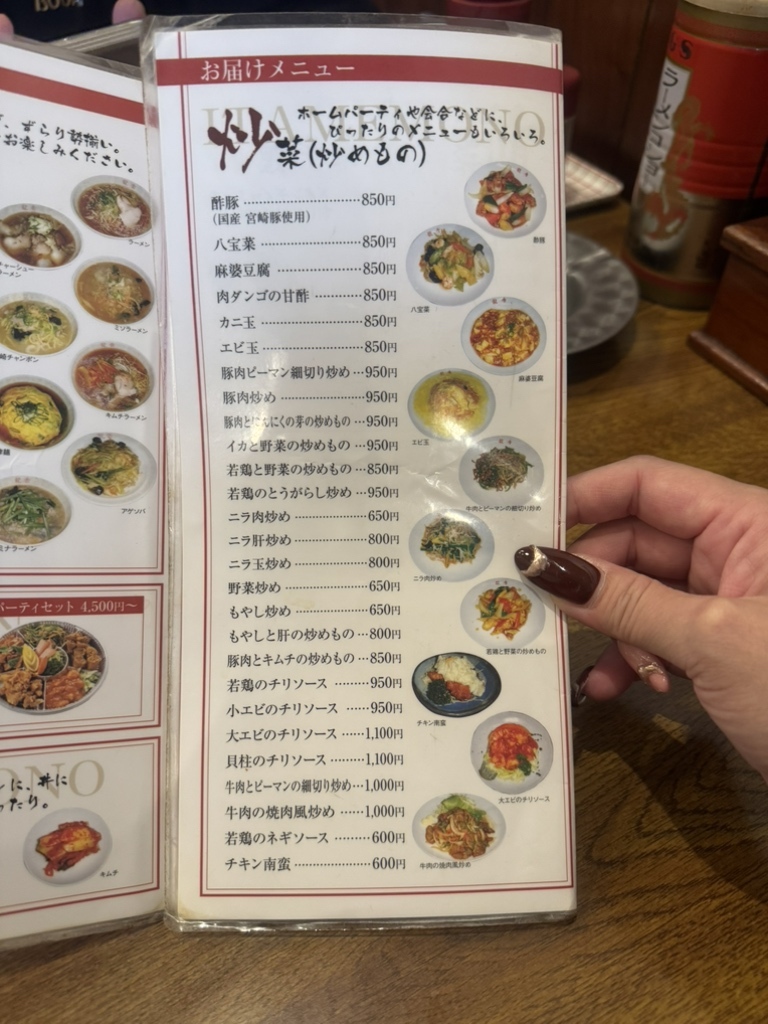 お届けメニュー
ITAMEMONO
ホームパーティや会合などに、
ぴったりのメニューもいろいろ。
炒菜(炒めもの)
酢豚 ……………………………850円
(国産 宮崎豚使用)
八宝菜 …………………………850円
麻婆豆腐 ………………………850円
肉ダンゴの甘酢 ………………850円
カニ玉 …………………………850円
エビ玉 …………………………850円
豚肉ピーマン細切り炒め …950円
豚肉炒め ………………………950円
豚肉とにんにくの芽の炒めもの …950円
イカと野菜の炒めもの …950円
若鶏と野菜の炒めもの …850円
若鶏のとうがらし炒め …950円
ニラ肉炒め ……………………650円
ニラ肝炒め ……………………800円
ニラ玉炒め ……………………800円
野菜炒め ………………………650円
もやし炒め ……………………650円
もやしと肝の炒めもの …800円
豚肉とキムチの炒めもの …850円
若鶏のチリソース ………950円
小エビのチリソース ……950円
大エビのチリソース ……1,100円
貝柱のチリソース ………1,100円
牛肉とピーマンの細切り炒め …1,000円
牛肉の焼肉風炒め ………1,000円
若鶏のネギソース ………600円
チキン南蛮 ……………………600円
酢豚
八宝菜
麻婆豆腐
エビ玉
牛肉とピーマンの細切り炒め
ニラ肉炒め
若鶏と野菜の炒めもの
チキン南蛮
大エビのチリソース
牛肉の焼肉風炒め
ずらり勢揃い。
お楽しみください。
ラーメン
チャーシュー
ラーメン
ミソラーメン
チャンポン
キムチラーメン
アゲソバ
ラーメン
パーティセット 4,500円〜
ONO
に、丼に
ったり。
キムチ